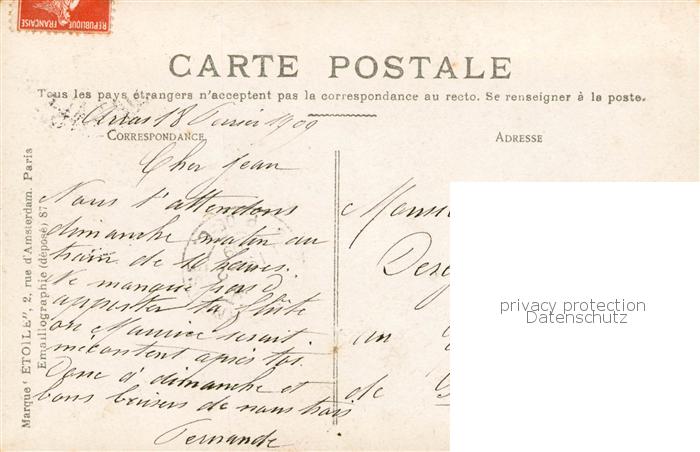 RÉPUBLIQUE FRANÇAISE
CARTE POSTALE
Tous les pays étrangers n'acceptent pas la correspondance au recto. Se renseigner à la poste.
Arras 18 Fevrier 1909
CORRESPONDANCE
ADRESSE
Cher Jean
Nous t'attendons
dimanche matin au
train de 10 heures.
Ne manque pas d
apporter ta flûte
ou Maurice serait
mécontent après toi.
Donc à dimanche et
bons baisers de nous trois
Fernande
Monsi
an
de
privacy protection
Datenschutz
Marque "ETOILE", 2, rue d'Amsterdam. Paris
Emaillographie (déposé) 87